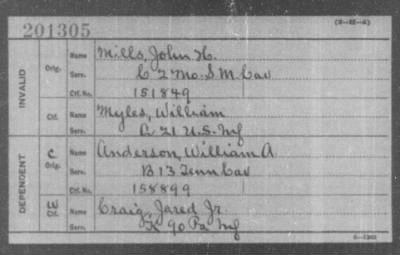 201305
(3-25-A)
INVALID
Orig. Name Mills, John H.
Serv. C 2 Mo. S. M. Cav
Ctf. No. 151849
Ctf. Name Myles, William
Serv. 21 U.S. Inf
DEPENDENT
C Orig. Name Anderson, William A
Serv. B 13 Tenn Cav
Ctf. No. 158899
W Ctf. Name Craig, Jared Jr.
Serv. K 90 Pa Inf